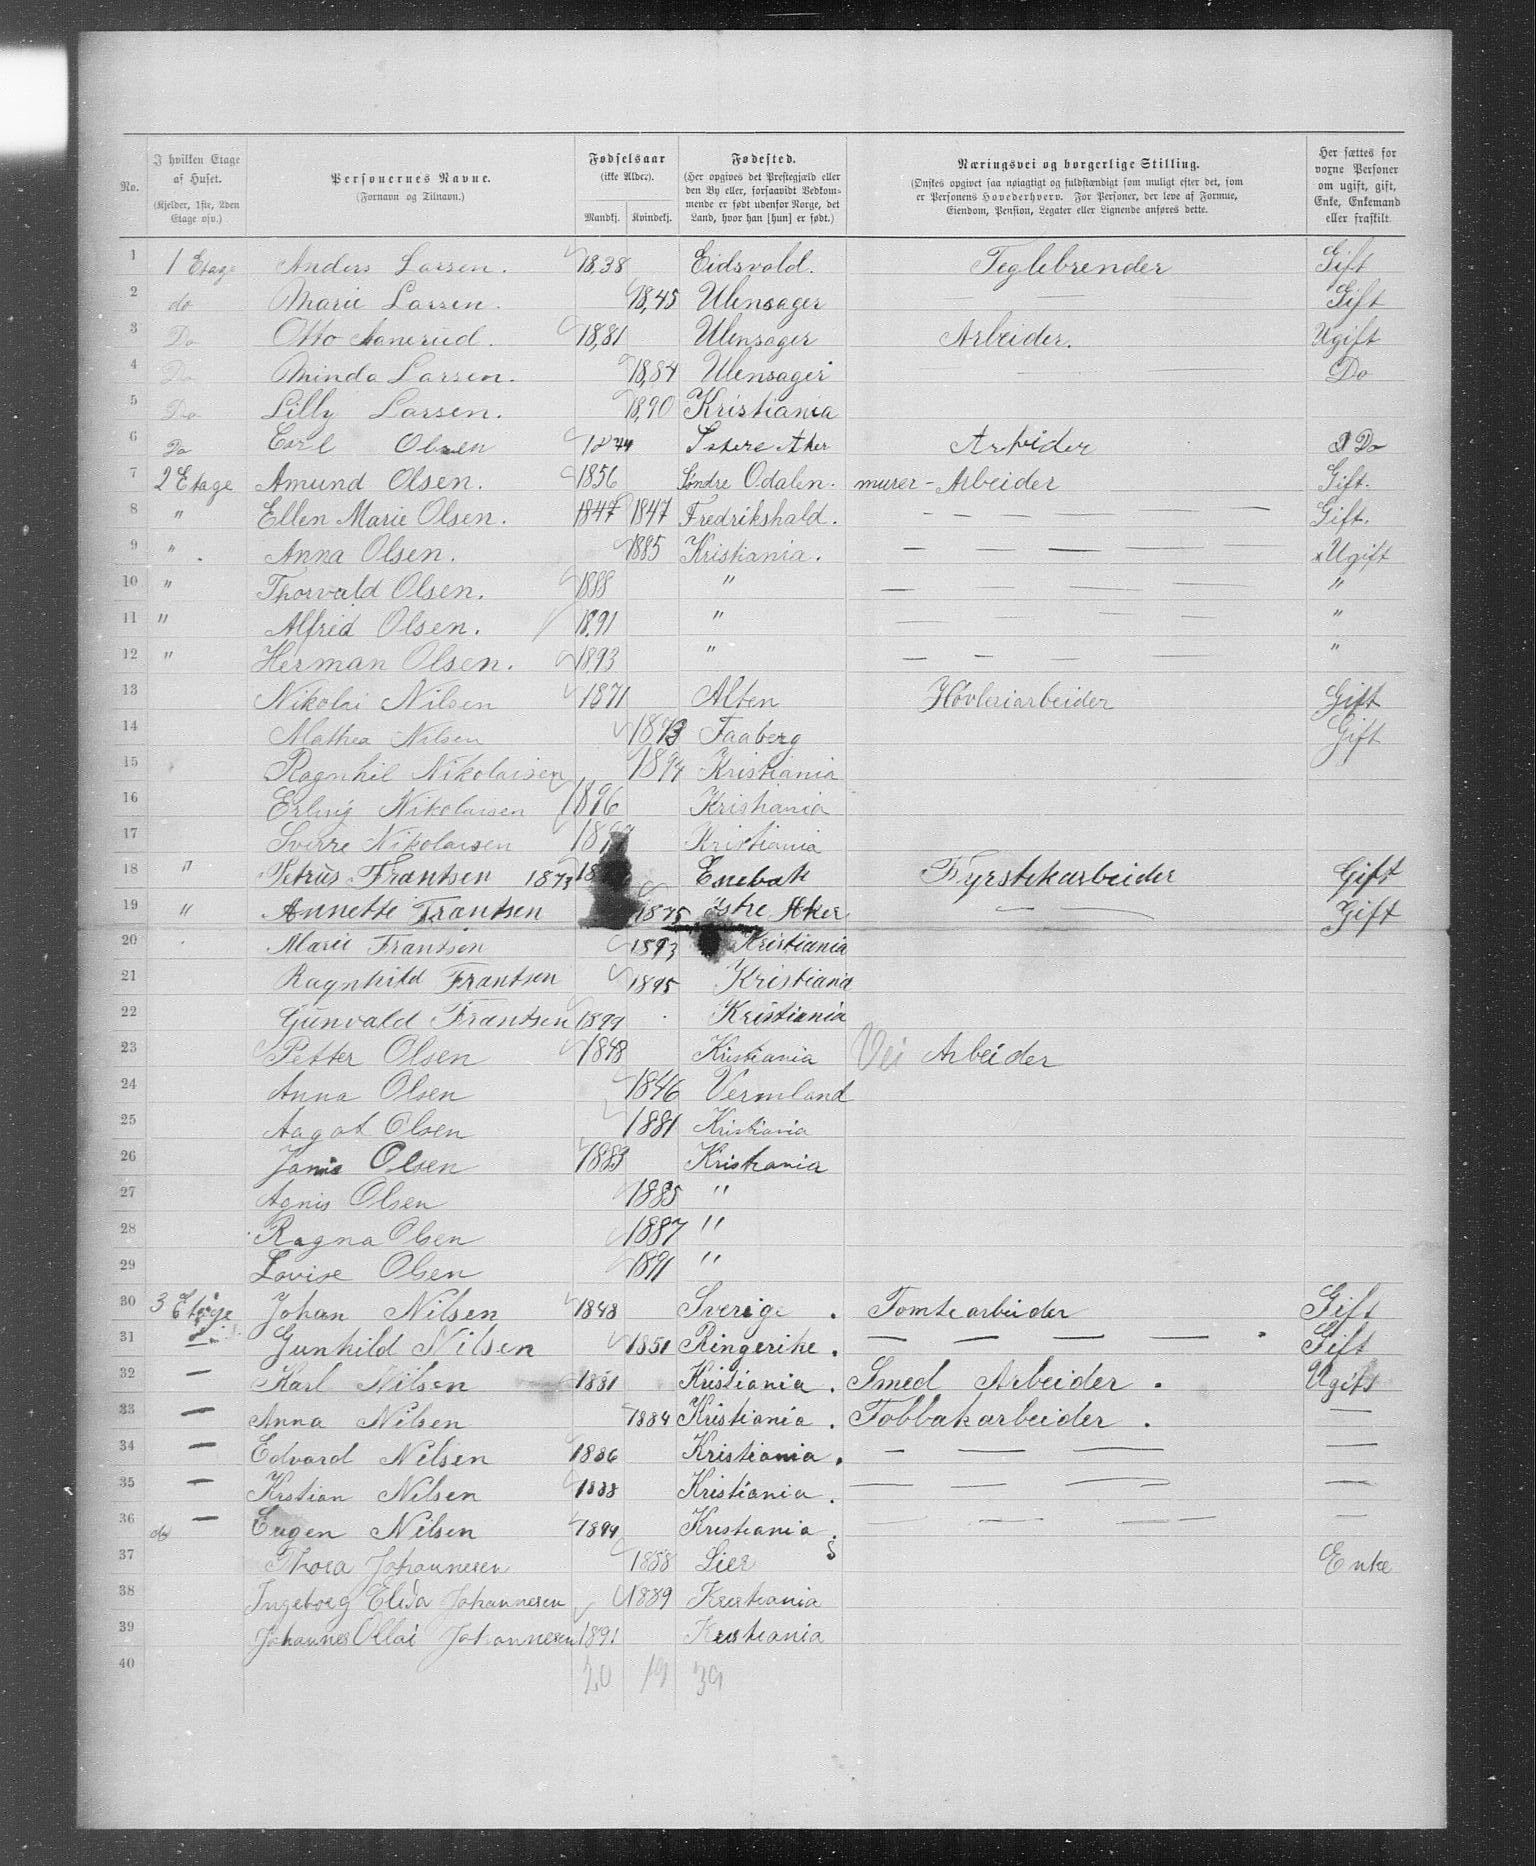 No. I hvilken Etage af Huset. (Kjelder, 1ste, 2den Etage osv.) Personernes Navne. (Fornavn og Tilnavn.) Fødselsaar (ikke Alder). Mandkj. Kvindekj. Fødested. (Her opgives det Prestegjæld eller den By eller, forsaavidt Vedkommende er født udenfor Norge, det Land, hvor han [hun] er født.) Næringsvei og borgerlige Stilling. (Ønskes opgivet saa nøiagtigt og fuldstændigt som muligt efter det, som er Personens Hovederhverv. For Personer, der leve af Formue, Eiendom, Pension, Legater eller Lignende anføres dette. Her sættes for voxne Personer om ugift, gift, Enke, Enkemand eller fraskilt.
1 1 Etage Anders Larsen. 1838 Eidsvold. Teglebrender Gift
2 do Marie Larsen. 18,45 Ulensager — — Gift
3 Do Otto Aanerud. 18,81 Ulensager Arbeider. Ugift
4 Do Minda Larsen. 18,84 Ulensager — — Do
5 Do Lilly Larsen. 18,90 Kristiania
6 Do Carl Olsen 1874 Østere Aker Arbeider Do
7 2 Etage Amund Olsen. 1856 Søndre Odalen. murer - Arbeider Gift.
8 " Ellen Marie Olsen. 1847 1847 Fredrikshald. — — — — Gift.
9 " . Anna Olsen. 1885 Kristiania. — — — — x Ugift
10 " Thorvald Olsen. 1888 " — — — "
11 " Alfred Olsen. 18,91 " — — — "
12 " Herman Olsen. 1893 " — — — "
13 Nikolai Nilsen 1871 Alten Høvleriarbeider Gift
14 Mathea Nilsen 1873 Faaberg Gift
15 Ragnhil Nikolaisen 1894 Kristiania
16 Erling Nikolaisen 1896 Kristiania
17 Sverre Nikolaisen Kristiania
18 " Petrus Frantsen 1873 Enebak Fyrstekarbeider Gift
19 " Annette Frantsen 1875 Østre Aker — — Gift
20 Marie Frantsen 1893 Kristiania
21 Ragnhild Frantsen 1895 Kristiania
22 Gunvald Frantsen 1899 Kristiania
23 Petter Olsen 1848 Kristiania Vei Arbeider
24 Anna Olsen 1846 Vermland
25 Aagot Olsen 1881 Kristiania
26 Olsen 1883 Kristiania
27 Agnis Olsen 1885 "
28 Ragna Olsen 1887 "
29 Lovise Olsen 1891 "
30 3 Etage Johan Nilsen 1848 Sverige . Tomtearbeider Gift
31 — Gunhild Nilsen 1851 Ringerike . — — — — — . Gift
32 — Karl Nilsen 1881 Kristiania . Smed Arbeider . Ugift
33 — Anna Nilsen 1884 Kristiania . Tobbakarbeider . —
34 — Edvard Nilsen 1886 Kristiania . — — — —
35 — Kristian Nilsen 1888 Kristiania . — — — — —
36 do — Eugen Nilsen 1894 Kristiania . — — — — —
37 Thora Johannesen 1858 Lier Enke
38 Ingeborg Elisa Johannesen 1889 Kristiania
39 Johannes Ollai Johannesen 1891 Kristiania
40 20 19 39